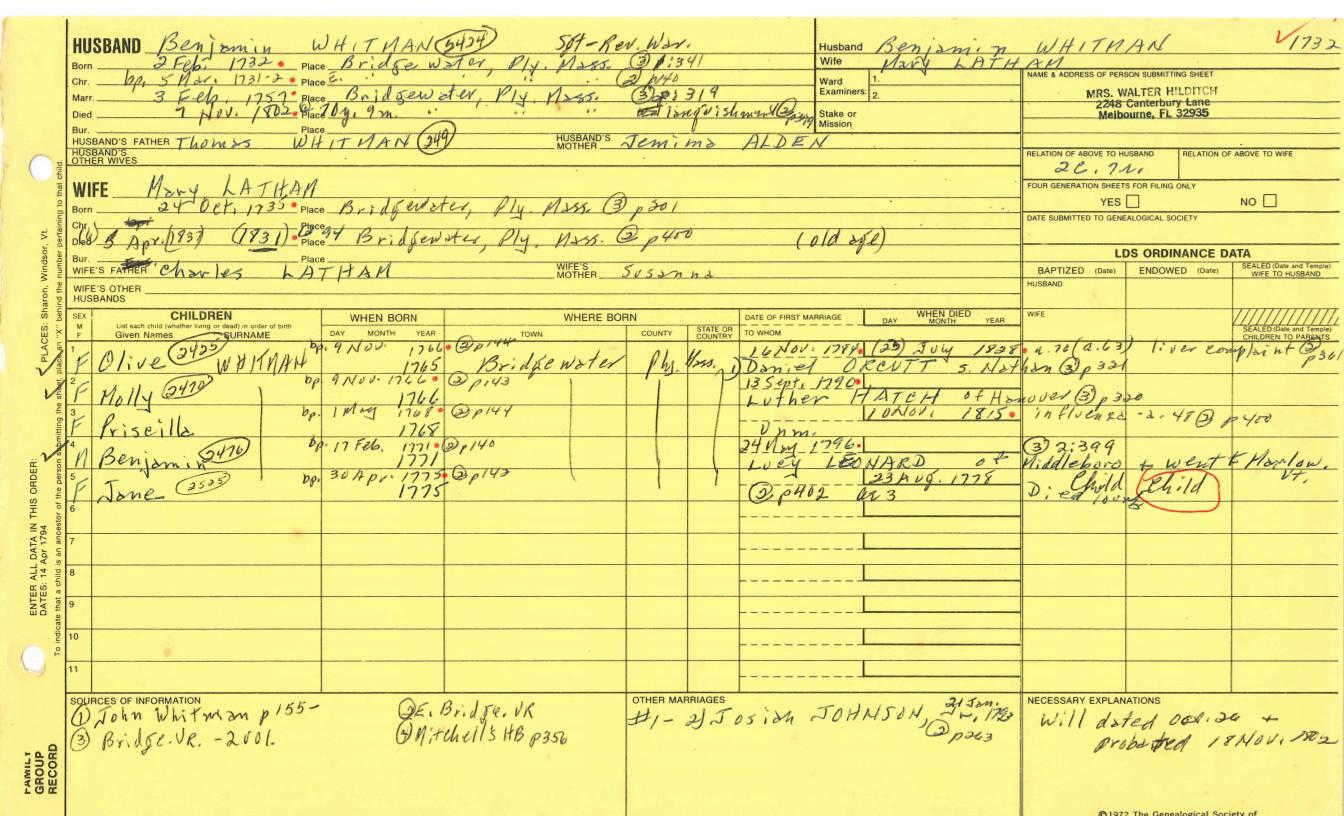 HUSBAND Benjamin WHITMAN 5424 Spt-Rev. War.
Born 2 Feb. 1732 Place Bridgewater, Ply. Mass. ③ p:341
Chr. bp. 5 Mar. 1731-2 Place E. " " " ② p40
Marr. 3 Feb. 1757 Place Bridgewater, Ply. Mass. ③ 2: 319
Died 7 Nov. 1802 a. 70y. 9m. Place " " languishment ②
Bur. Place
HUSBAND'S FATHER Thomas WHITMAN 249 HUSBAND'S MOTHER Jemima ALDEN
HUSBAND'S OTHER WIVES
WIFE Mary LATHAM
Born 24 Oct. 1735 Place Bridgewater, Ply. Mass ③ p201
Chr. Place
Died 5 Apr. (1831) Place Bridgewater, Ply. Mass. ② p400 (old age)
WIFE'S FATHER Charles LATHAM WIFE'S MOTHER Susanna
WIFE'S OTHER HUSBANDS
Husband Benjamin WHITMAN 1732
Wife Mary LATHAM
Ward 1.
Examiners: 2.
Stake or Mission
NAME & ADDRESS OF PERSON SUBMITTING SHEET
MRS. WALTER HILDITCH
2248 Canterbury Lane
Melbourne, FL 32935
RELATION OF ABOVE TO HUSBAND RELATION OF ABOVE TO WIFE
FOUR GENERATION SHEETS FOR FILING ONLY
YES NO
DATE SUBMITTED TO GENEALOGICAL SOCIETY
LDS ORDINANCE DATA
BAPTIZED (Date) ENDOWED (Date) SEALED (Date and Temple) WIFE TO HUSBAND
HUSBAND
WIFE
SEALED (Date and Temple) CHILDREN TO PARENTS
SEX M F
CHILDREN
List each child (whether living or dead) in order of birth
Given Names SURNAME
WHEN BORN
DAY MONTH YEAR
WHERE BORN
TOWN COUNTY STATE OR COUNTRY
DATE OF FIRST MARRIAGE
TO WHOM
WHEN DIED
DAY MONTH YEAR
1 bp. 9 Nov. 1766 ② p144 16 Nov. 1784 (25) July 1828 a. 70 (a.63) liver complaint ②
F Olive 2425 WHITMAN 1765 Bridgewater Ply. Mass. 1) Daniel ORCUTT s. Nathan ③ p321
2 bp. 9 Nov. 1766 ② p143 13 Sept. 1790
F Molly 2470 1766 Luther HATCH of Hanover ③ p320
3 bp. 1 May 1768 ② p144 10 Nov. 1815 influenza -a. 48 ② p400
F Priscilla 1768 Unm.
4 bp. 17 Feb. 1771 ② p140 24 May 1796 ③ 2:399
M Benjamin 2476 1771 Lucy LEONARD of Middleboro + went to Marlow, Vt.
5 bp. 30 Apr. 1775 ② p143 23 Aug. 1778 Child
F Jane 2525 1775 ② p402 ae 3 Died young Child
6
7
8
9
10
11
SOURCES OF INFORMATION
① John Whitman p155- ② E. Bridge. VR
③ Bridge. VR. -2 vol. ④ Mitchell's HB p356
OTHER MARRIAGES
#1- 2) Josiah JOHNSON, 21 Jan. 1793
② p263
NECESSARY EXPLANATIONS
Will dated Oct. 20 +
probated 18 Nov. 1802
ENTER ALL DATA IN THIS ORDER:
DATES: 14 Apr 1794 PLACES: Sharon, Windsor, Vt.
To indicate that a child is an ancestor of the person submitting the sheet, place an "X" behind the number pertaining to that child.
FAMILY GROUP RECORD
©1972 The Genealogical Society of